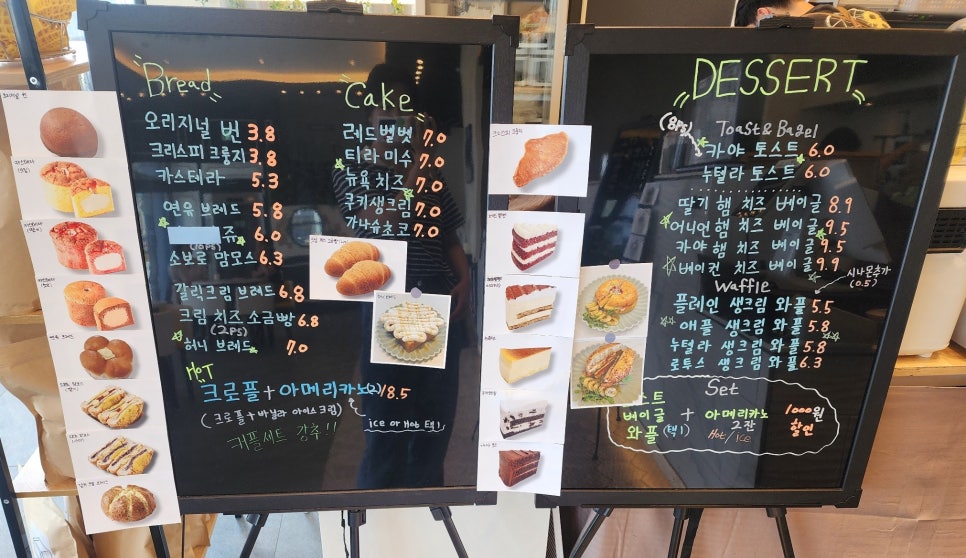 Bread
오리지널 번 3.8
크리스피 크룽지 3.8
카스테라 5.3
연유 브레드 5.8
쥬 6.0
소보로 맘모스 6.3
갈릭크림 브레드 6.8
크림 치즈 소금빵 6.8
(2PS)
허니 브레드 7.0
HOT
크로플+아메리카노(2) 18.5
(크로플+바닐라 아이스크림)
ice or Hot 택1
커플세트 강추!!
Cake
레드벨벳 7.0
티라미수 7.0
뉴욕 치즈 7.0
쿠키생크림 7.0
가나슈쵸코 7.0
DESSERT
Toast & Bagel
(8PS)
카야 토스트 6.0
누텔라 토스트 6.0
딸기 햄 치즈 베이글 8.9
어니언 햄 치즈 베이글 9.5
카야 햄 치즈 베이글 9.5
베이컨 치즈 베이글 9.9
시나몬추가
(0.5)
Waffle
플레인 생크림 와플 5.5
애플 생크림 와플 5.8
누텔라 생크림 와플 5.8
로투스 생크림 와플 6.3
Set
스트
베이글 + 아메리카노
와플 (택1) 2잔
Hot / Ice
1000원
할인